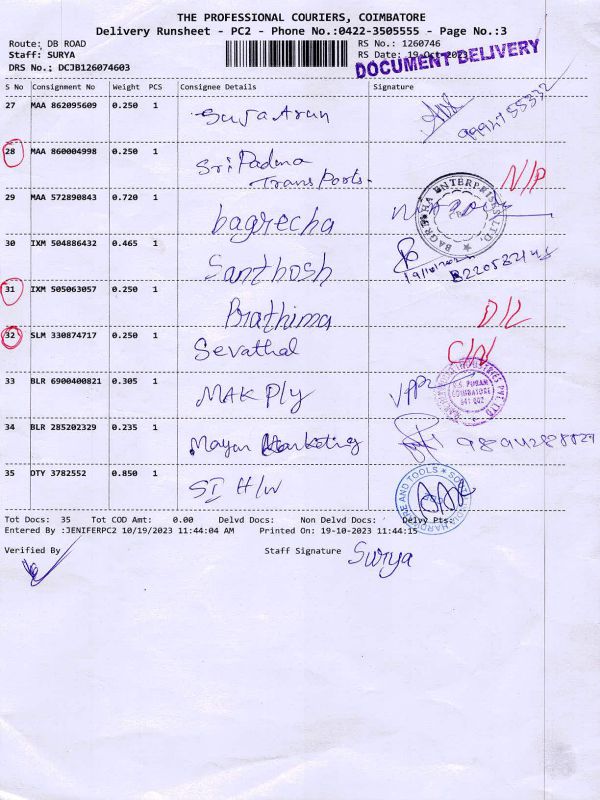 THE PROFESSIONAL COURIERS, COIMBATORE
Delivery Runsheet - PC2 - Phone No.:0422-3505555 - Page No.:3
Route: DB ROAD RS No.: 1260746
Staff: SURYA RS Date: 19-Oct-2023
DRS No.: DCJB126074603 DOCUMENT DELIVERY
S No Consignment No Weight PCS Consignee Details Signature
27 MAA 862095609 0.250 1 Suja Arun
28 MAA 860004998 0.250 1 Sri Padma Transports. N/P
29 MAA 572890843 0.720 1 bagrecha BAGRECHA ENTERPRISES LTD.
30 IXM 504886432 0.465 1 Santhosh
31 IXM 505063057 0.250 1 Prathima D/L
32 SLM 330874717 0.250 1 Sevathal C/N
33 BLR 6900400821 0.305 1 MAK Ply R.S. PURAM COIMBATORE 641 002
34 BLR 285202329 0.235 1 Mayan Marketing
35 DTY 3782552 0.850 1 SI H/W
Tot Docs: 35 Tot COD Amt: 0.00 Delvd Docs: Non Delvd Docs: Delvy Pts:
Entered By :JENIFERPC2 10/19/2023 11:44:04 AM Printed On: 19-10-2023 11:44:15
Verified By Staff Signature Surya